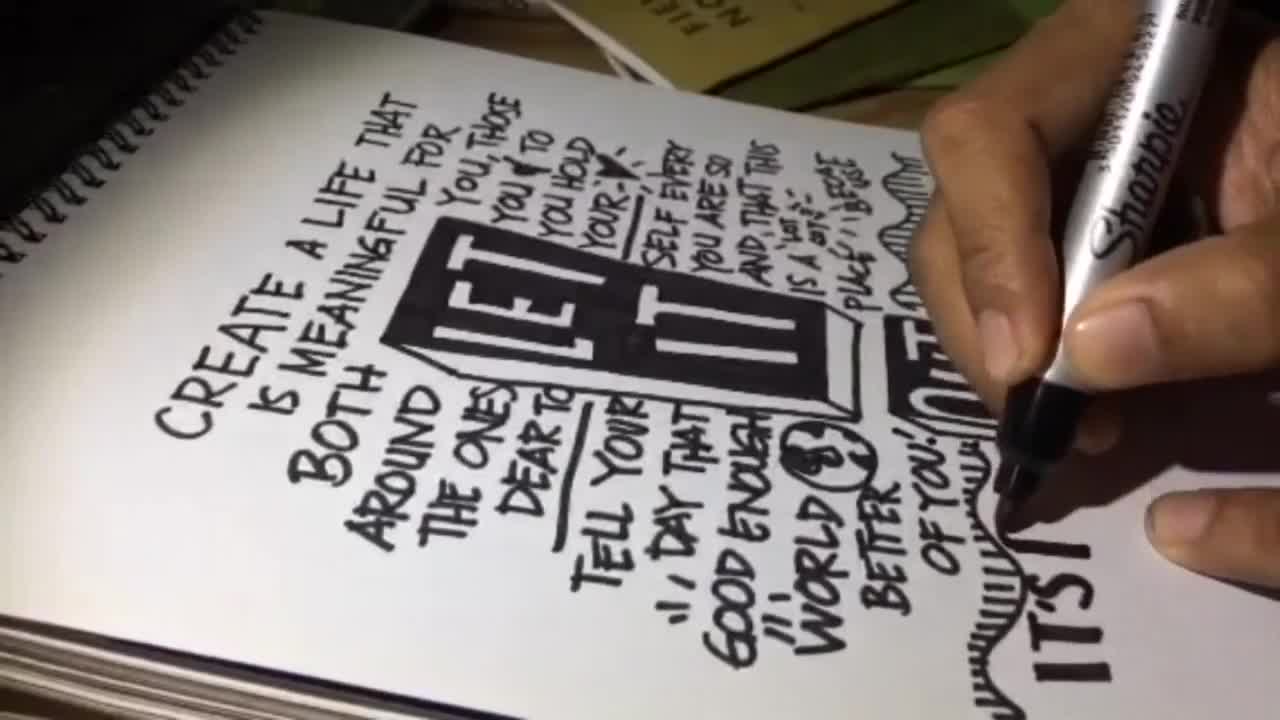 CREATE A LIFE THAT
IS MEANINGFUL FOR
BOTH YOU, THOSE
AROUND YOU & TO
THE ONES YOU HOLD
DEAR TO YOUR
TELL YOUR SELF EVERY
DAY THAT YOU ARE SO
GOOD ENOUGH AND THAT THIS
WORLD IS A LOT
BETTER PLACE
OF YOU!
LET
IT
IT'S
Sharpie
FIEL
NO